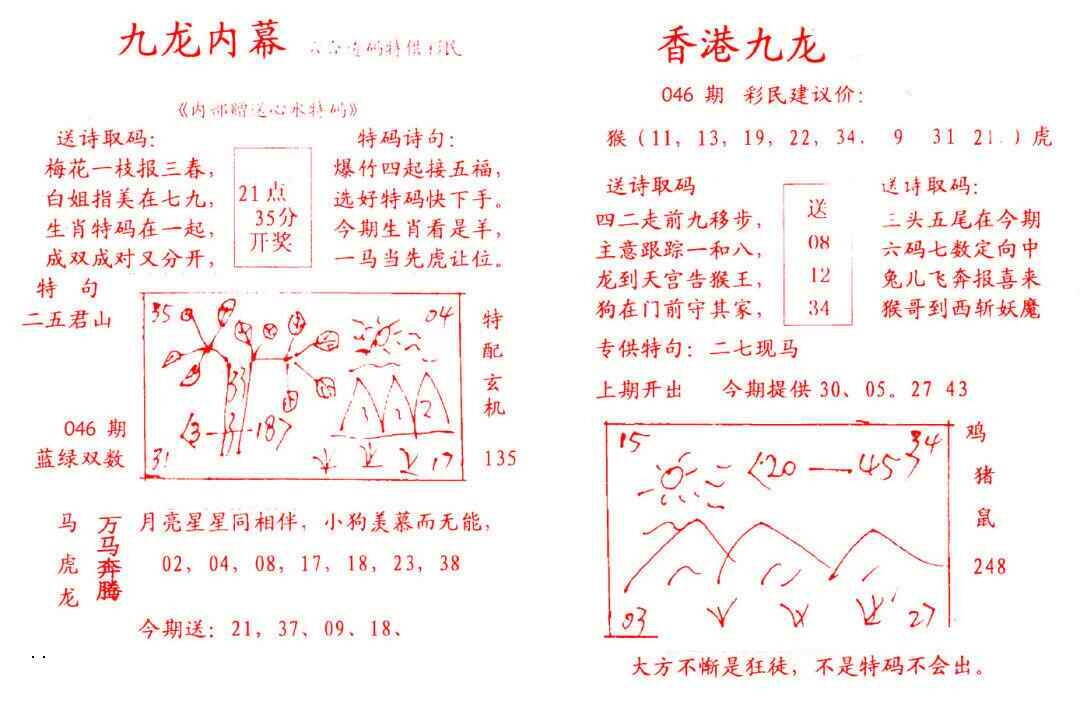 九龙内幕
码特供彩民
《内部赠送心水特码》
送诗取码：
梅花一枝报三春，
白姐指美在七九，
生肖特码在一起，
成双成对又分开，
21点
35分
开奖
特码诗句：
爆竹四起接五福，
选好特码快下手。
今期生肖看是羊，
一马当先虎让位。
特 句
二五君山
046 期
蓝绿双数
35
04
33
3
1
2
31
17
特配玄机
135
马虎龙
万马奔腾
月亮星星同相伴，小狗羡慕而无能，
02，04，08，17，18，23，38
今期送：21，37、09、18、
香港九龙
046 期 彩民建议价：
猴（11，13，19，22，34． 9 31 21．）虎
送诗取码
四二走前九移步，
主意跟踪一和八，
龙到天宫告猴王，
狗在门前守其家，
送
08
12
34
送诗取码：
三头五尾在今期
六码七数定向中
兔儿飞奔报喜来
猴哥到西斩妖魔
专供特句：二七现马
上期开出 今期提供 30、05。27 43
15
34
20—45
03
27
鸡
猪
鼠
248
大方不惭是狂徒，不是特码不会出。